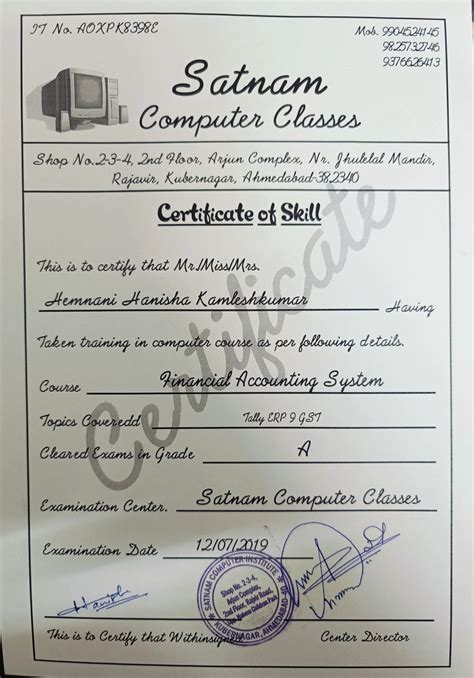 IT No. AOXPK8398E
Mob. 9904524145
9825732746
9376626413
Satnam
Computer Classes
Shop No.2-3-4, 2nd Floor, Arjun Complex, Nr. Jhulelal Mandir,
Rajavir, Kubernagar, Ahmedabad-382340
Certificate of Skill
Certificate
This is to certify that Mr./Miss/Mrs.
Hemnani Hanisha Kamleshkumar Having
Taken training in computer course as per following details.
Course Financial Accounting System
Topics Coveredd Tally ERP 9 GST
Cleared Exams in Grade A
Examination Center. Satnam Computer Classes
Examination Date 12/07/2019
SATNAM COMPUTER INSTITUTE
Shop No. 2-3-4,
Arjun Complex,
2nd Floor,
KUBERNAGAR, AHMEDABAD-40
Hanisha
This is to Certify that Withinsigned
Center Director